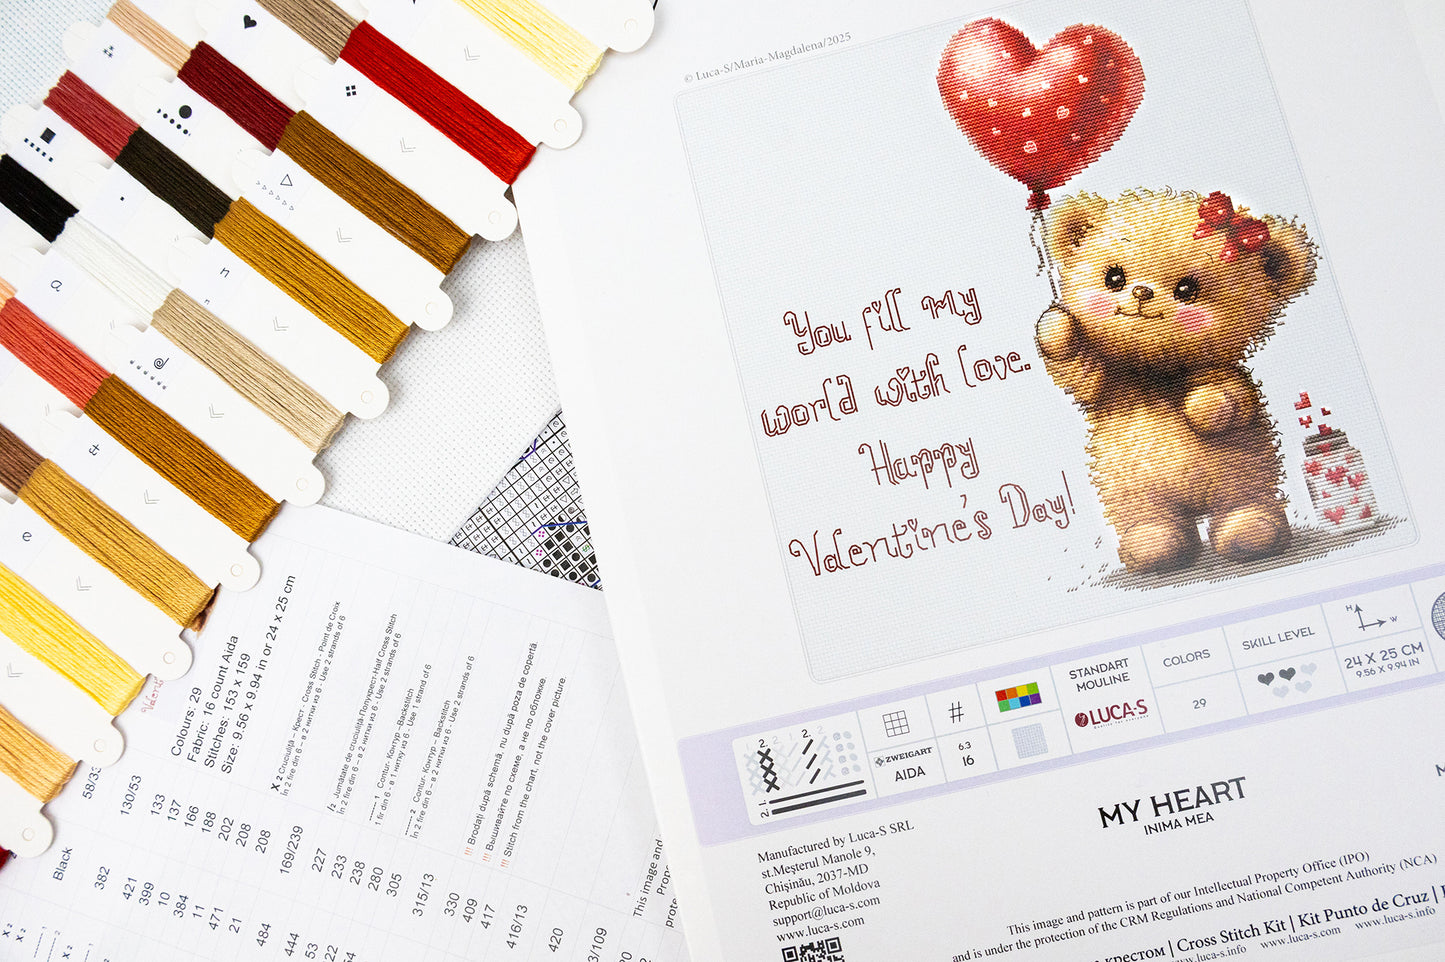 © Luca-S/Maria-Magdalena/2025
You fill my
world with love.
Happy
Valentine's Day!
2. 2.
2. 1.
ZWEIGART
AIDA
#
6.3
16
STANDART
MOULINE
LUCA-S
COLORS
29
SKILL LEVEL
H
W
24 X 25 CM
9.56 X 9.94 IN
MY HEART
INIMA MEA
Manufactured by Luca-S SRL
st.Meșterul Manole 9,
Chișinău, 2037-MD
Republic of Moldova
support@luca-s.com
www.luca-s.com
This image and pattern is part of our Intellectual Property Office (IPO)
and is under the protection of the CRM Regulations and National Competent Authority (NCA)
крестом | Cross Stitch Kit | Kit Punto de Cruz |
www.luca-s.info www.luca-s.com www.luca-s.info
a
n
n
@
e
Colours: 29
Fabric: 16 count Aida
Stitches: 153 x 159
Size: 9.56 x 9.94 in or 24 x 25 cm
X 2 Cruciuliță – Крест - Cross Stitch - Point de Croix
În 2 fire din 6 – в 2 нитки из 6 - Use 2 strands of 6
/2 Jumătate de cruciuliță-Полукрест-Half Cross Stitch
În 2 fire din 6 – в 2 нитки из 6 - Use 2 strands of 6
1 Contur- Контур –Backstitch
1 fir din 6 - в 1 нитку из 6 - Use 1 strand of 6
2 Contur- Контур – Backstitch
În 2 fire din 6 – в 2 нитки из 6 - Use 2 strands of 6
!!! Brodați după schemă, nu după poza de copertă.
!!! Вышивайте по схеме, а не по обложке.
!!! Stitch from the chart, not the cover picture
58/33
130/53
133
137
166
188
202
208
208
169/239
227
233
238
280
305
315/13
330
409
417
416/13
420
Black
382
421
399
10
384
11
471
21
484
444
53
522
54
3/109
200
This image and
X 2
X 2